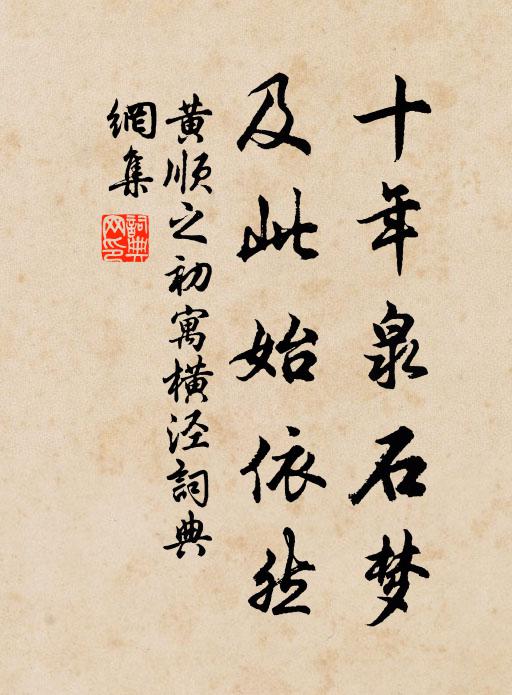 十年泉石梦
及此始依然
黄顺之初寓横泾詞典
網集
詞典网印